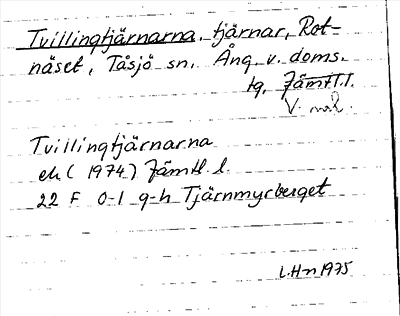 Tvillingtjärnarna, tjärnar, Rot-
näset, Tåsjö sn. Ång. v. doms.
tg, Jämtl.l.
V. nol.
Tvillingtjärnarna
ek (1974) Jämtl. l.
22 F 0-1 g-h Tjärnmyrberget
L.Hn 1975